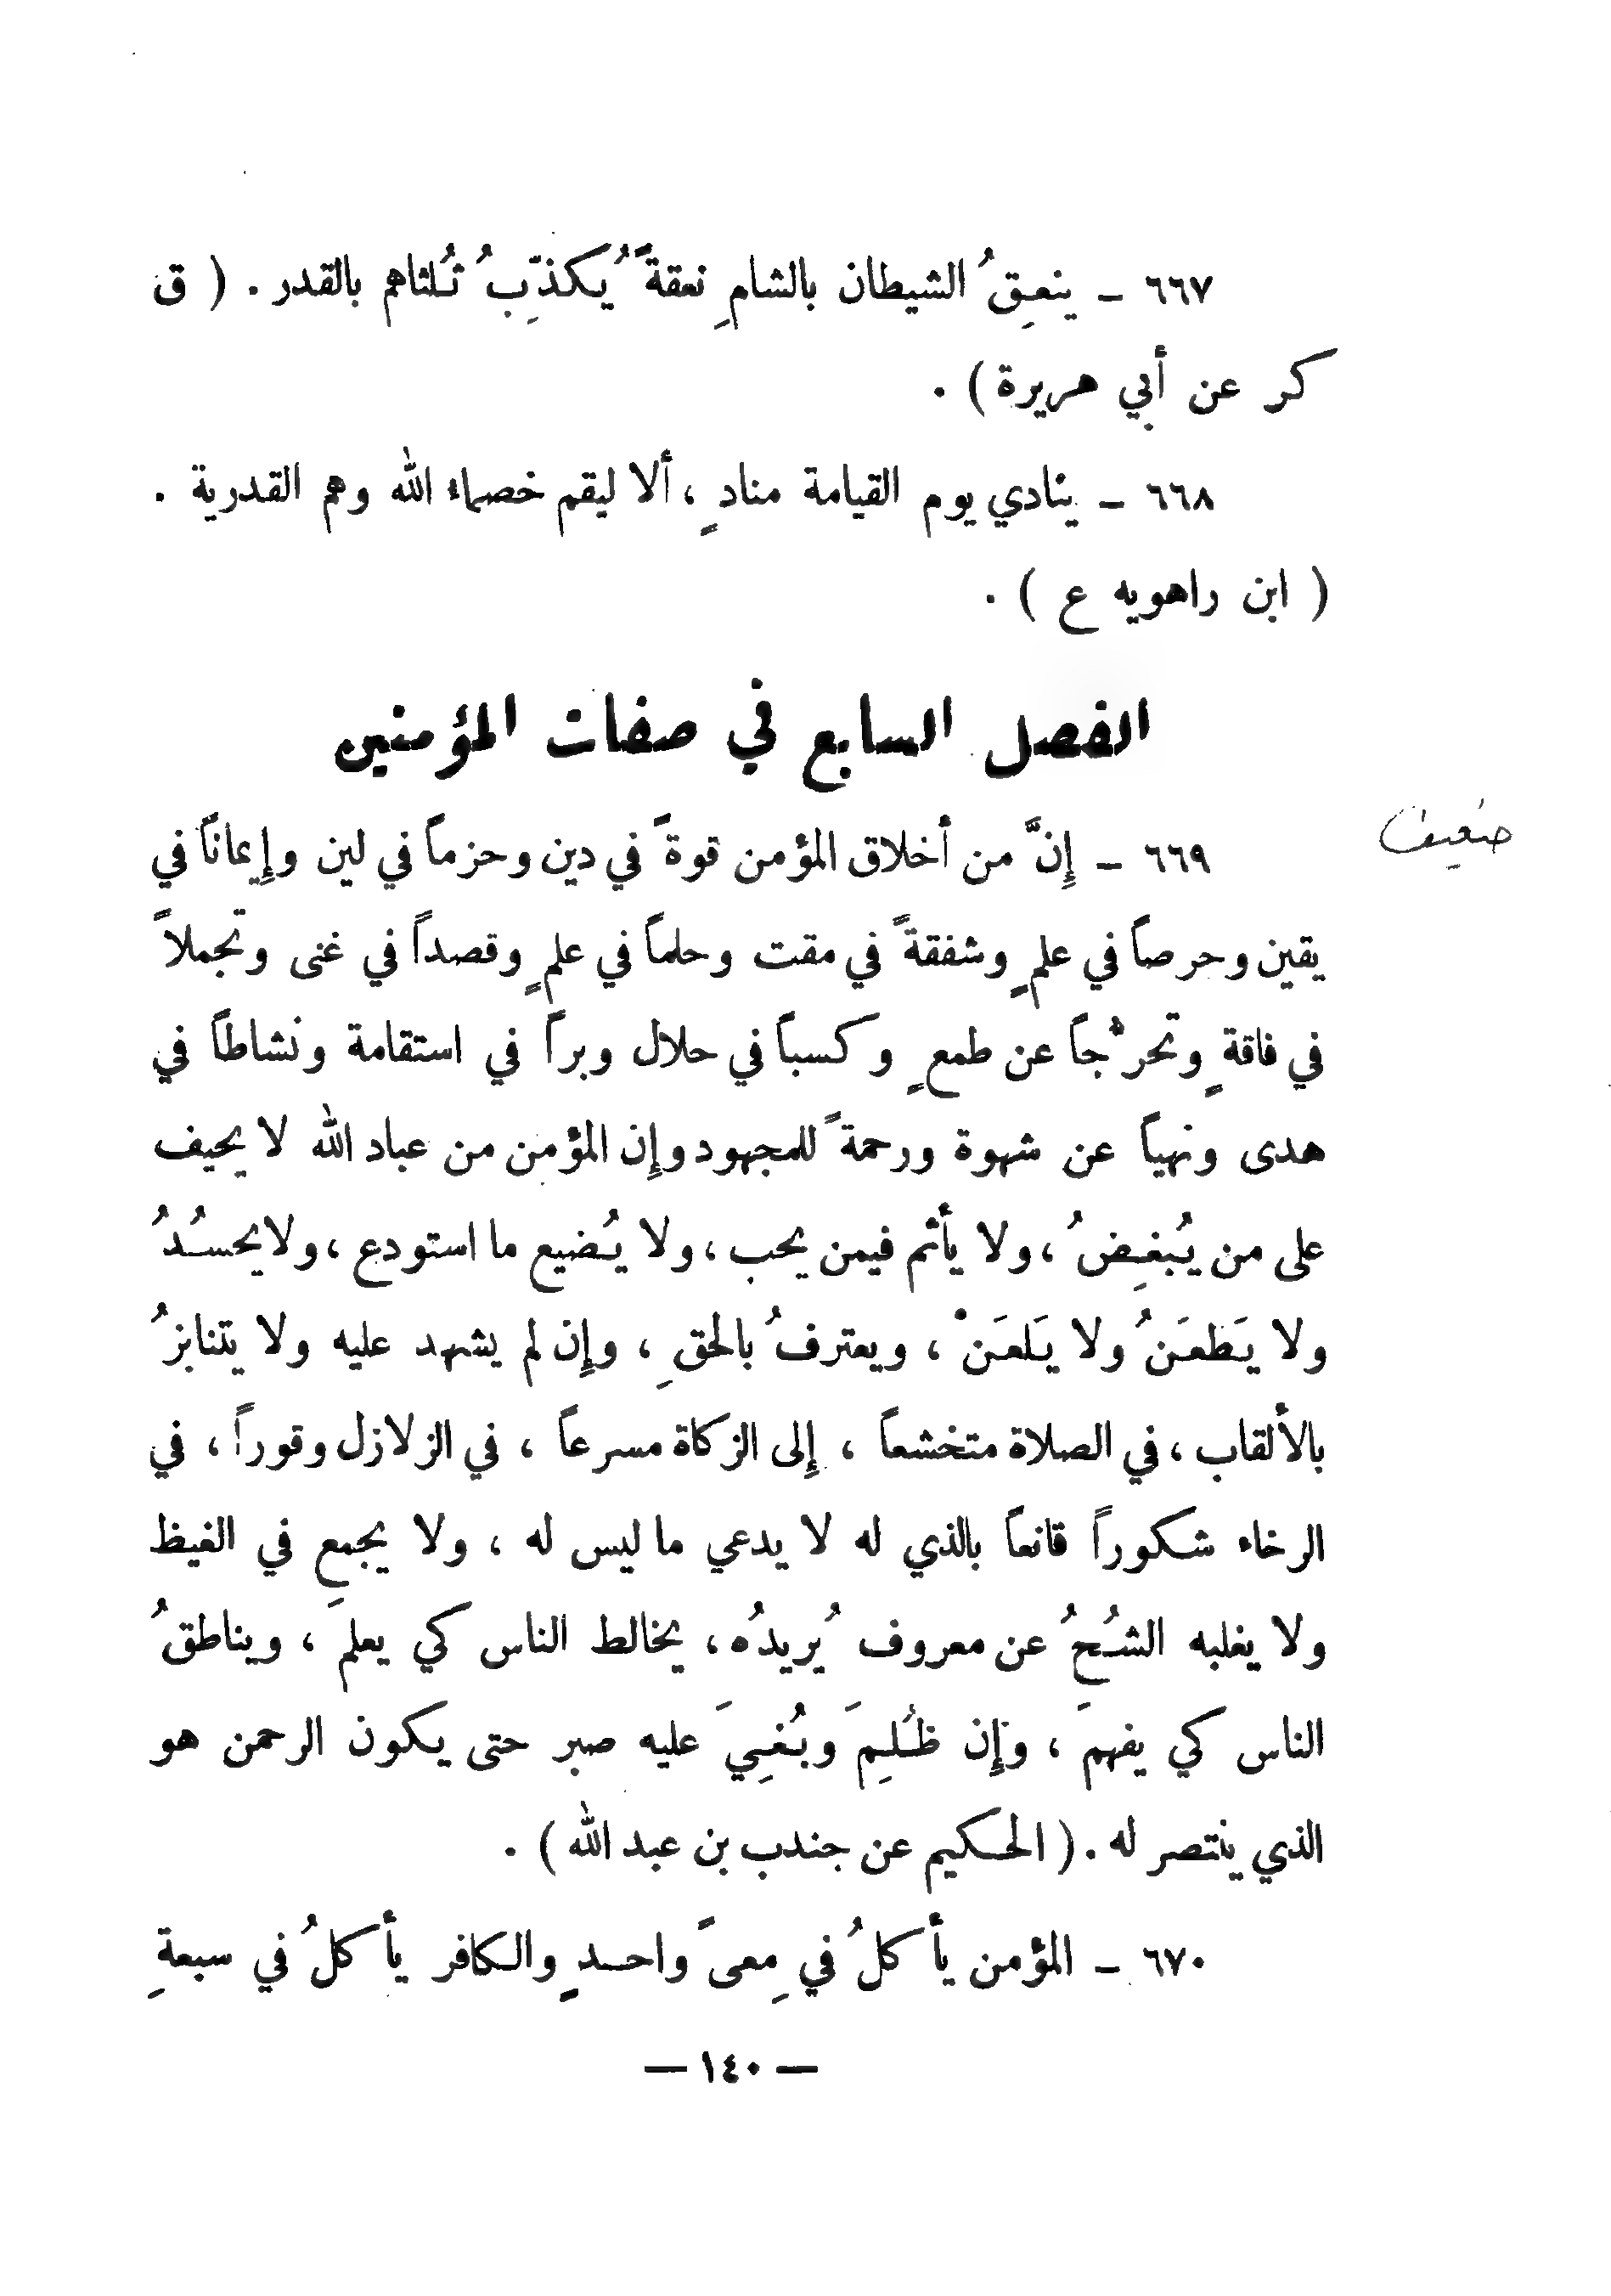 ٦٦٧ ـ ينعِقُ الشيطان بالشامِ نعقةً يُكذِّبُ ثُلثاهم بالقدر . ( ق
كر عن أبي هريرة ) .
٦٦٨ ـ ينادي يوم القيامة منادٍ ، ألا ليقم خصماء الله وهم القدرية .
( ابن راهويه ع ) .
الفصل السابع في صفات المؤمنين
ضعيف
٦٦٩ ـ إِنَّ من أخلاق المؤمن قوةً في دين وحزماً في لين وإِيماناً في
يقين وحرصاً في علمٍ وشفقةً في مقت وحلماً في علمٍ وقصداً في غنى وتجملاً
في فاقةٍ وتحرُّجاً عن طمعٍ وكسباً في حلال وبراً في استقامة ونشاطاً في
هدى ونهياً عن شهوة ورحمةً للمجهود وإِن المؤمن من عباد الله لا يحيف
على من يُبغِضُ ، ولا يأثم فيمن يحب ، ولا يُضيع ما استودع ، ولا يحسُدُ
ولا يَطعَنُ ولا يَلعَنْ ، ويعترفُ بالحقِ ، وإِن لم يشهد عليه ولا يتنابزُ
بالألقاب ، في الصلاة متخشعاً ، إِلى الزكاة مسرعاً ، في الزلازل وقوراً ، في
الرخاء شكوراً قانعاً بالذي له لا يدعي ما ليس له ، ولا يجمعِ في الغيظ
ولا يغلبه الشُحُ عن معروف يُريدُه ، يخالط الناس كي يعلمَ ، ويناطقُ
الناس كي يفهمَ ، وإِن ظُلِمَ وبُغِيَ عليه صبر حتى يكون الرحمن هو
الذي ينتصر له . ( الحكيم عن جندب بن عبد الله ) .
٦٧٠ ـ المؤمن يأكلُ في مِعىً واحدٍ والكافر يأكلُ في سبعةِ
— ١٤٠ —